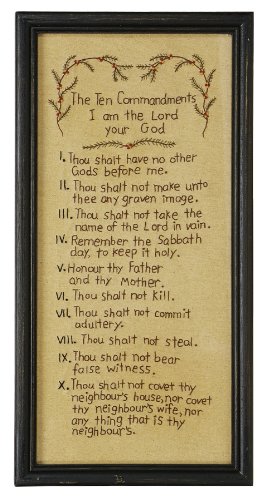 The Ten Commandments
I am the Lord
your God
I. Thou shalt have no other
Gods before me.
II. Thou shalt not make unto
thee any graven image.
III. Thou shalt not take the
name of the Lord in vain.
IV. Remember the Sabbath
day, to keep it holy.
V. Honour thy Father
and thy Mother.
VI. Thou shalt not kill.
VII. Thou shalt not commit
adultery.
VIII. Thou shalt not steal.
IX. Thou shalt not bear
false witness.
X. Thou shalt not covet thy
neighbour's house, nor covet
thy neighbour's wife, nor
any thing that is thy
neighbour's.